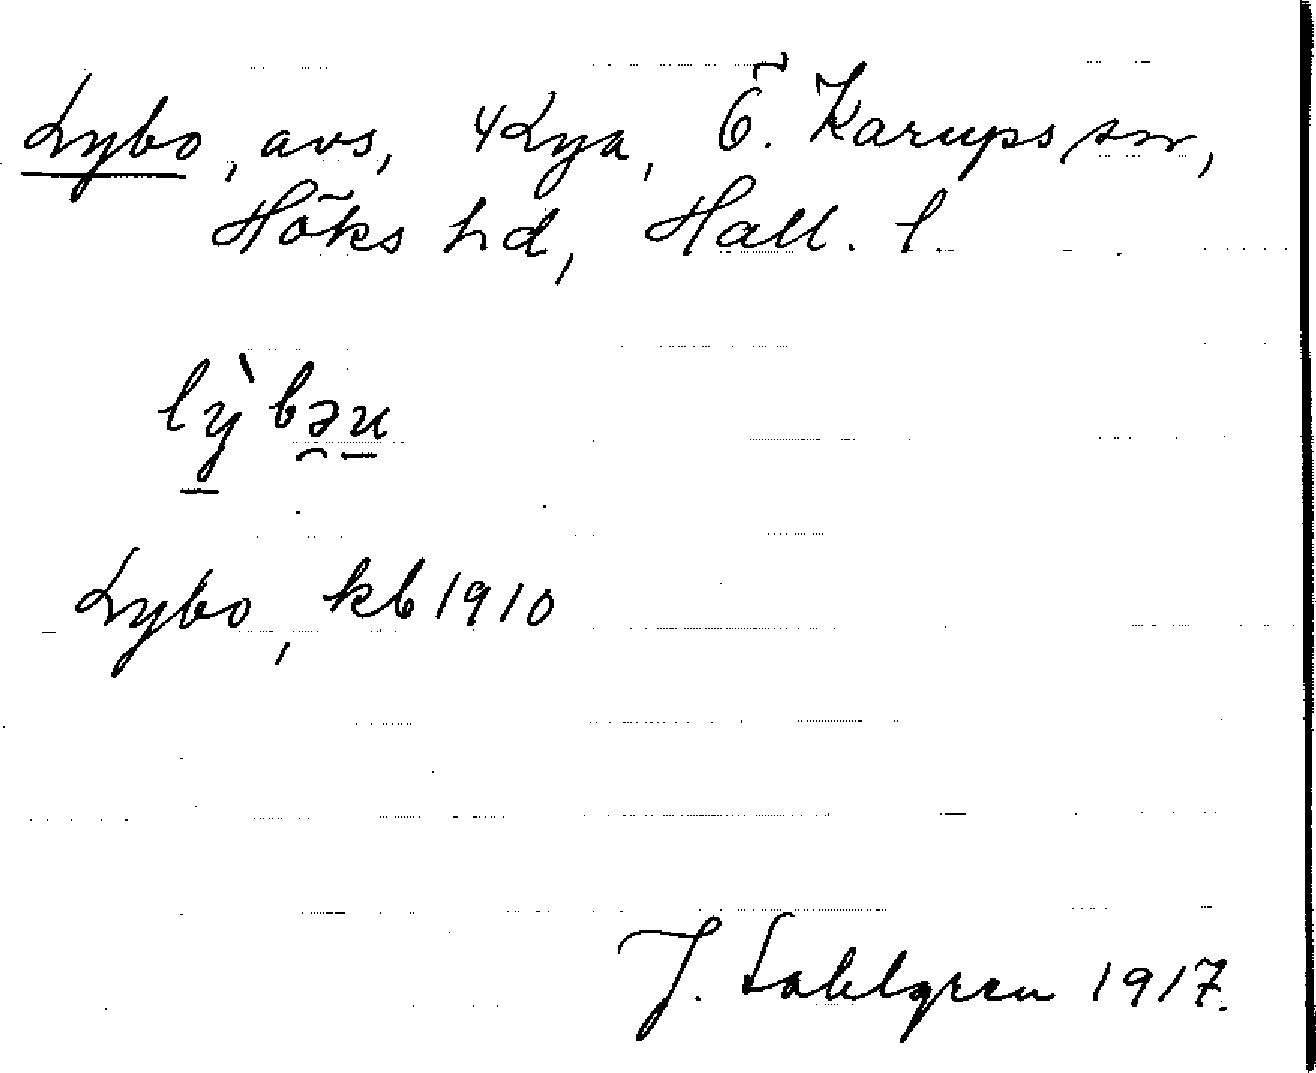 Lybo, avs, 4 Lya, Ö. Karups sn,
Höks hd, Hall. l.
lỳbəu
Lybo, kb 1910
J. Sahlgren 1917.